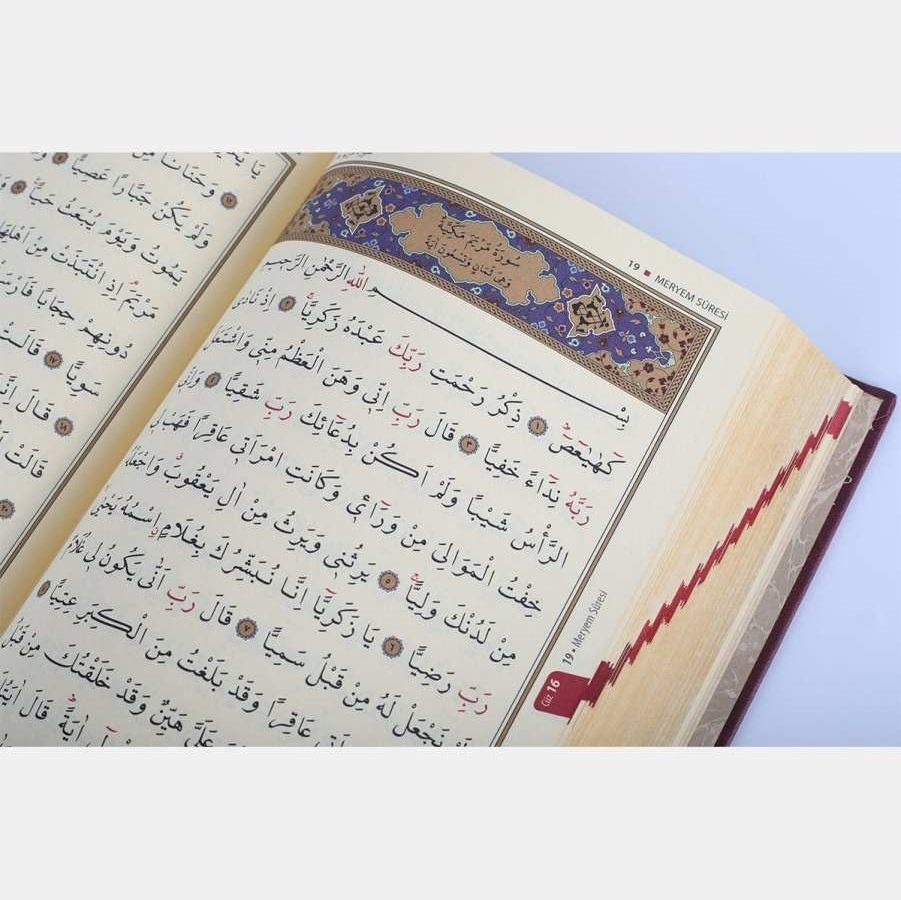 19 ▪ MERYEM SÛRESİ
سُورَةُ مَرْيَمَ مَكِّيَّةٌ
وَهِىَ ثَمَانٍ وَتِسْعُونَ اٰيَةً
بِسْمِ اللّٰهِ الرَّحْمٰنِ الرَّحٖيمِ
كٓهٰيٰعٓصٓ ﴿١﴾ ذِكْرُ رَحْمَتِ رَبِّكَ عَبْدَهُ زَكَرِيَّاۚ ﴿٢﴾ اِذْ نَادٰى
رَبَّهُ نِدَٓاءً خَفِيًّا ﴿٣﴾ قَالَ رَبِّ اِنّٖى وَهَنَ الْعَظْمُ مِنّٖى وَاشْتَعَلَ
الرَّأْسُ شَيْبًا وَلَمْ اَكُنْ بِدُعَٓائِكَ رَبِّ شَقِيًّا ﴿٤﴾ وَاِنّٖى
خِفْتُ الْمَوَالِىَ مِنْ وَرَٓاءٖى وَكَانَتِ امْرَاَتٖى عَاقِرًا فَهَبْ لٖى
مِنْ لَدُنْكَ وَلِيًّاۙ ﴿٥﴾ يَرِثُنٖى وَيَرِثُ مِنْ اٰلِ يَعْقُوبَ وَاجْعَلْهُ
رَبِّ رَضِيًّا ﴿٦﴾ يَا زَكَرِيَّٓا اِنَّا نُبَشِّرُكَ بِغُلَامٍ اسْمُهُ يَحْيٰى
لَمْ نَجْعَلْ لَهُ مِنْ قَبْلُ سَمِيًّا ﴿٧﴾ قَالَ رَبِّ اَنّٰى يَكُونُ لٖى غُلَامٌ
عَاقِرًا وَقَدْ بَلَغْتُ مِنَ الْكِبَرِ عِتِيًّا ﴿٨﴾
عَلَىَّ هَيِّنٌ وَقَدْ خَلَقْتُكَ مِنْ قَبْلُ
اٰيَةً قَالَ اٰيَتُكَ
Cüz 16
19 ▪ Meryem Sûresi
وَحَنَانًا مِنْ
وَلَمْ يَكُنْ جَبَّارًا عَصِيًّا ﴿١٤﴾
يَمُوتُ وَيَوْمَ يُبْعَثُ حَيًّا ﴿١٥﴾
مَرْيَمَ اِذِ انْتَبَذَتْ مِنْ اَهْلِهَا
دُونِهِمْ حِجَابًا
سَوِيًّا ﴿١٧﴾ قَالَتْ
﴿١٨﴾ قَالَ اِنَّمَا
قَالَتْ